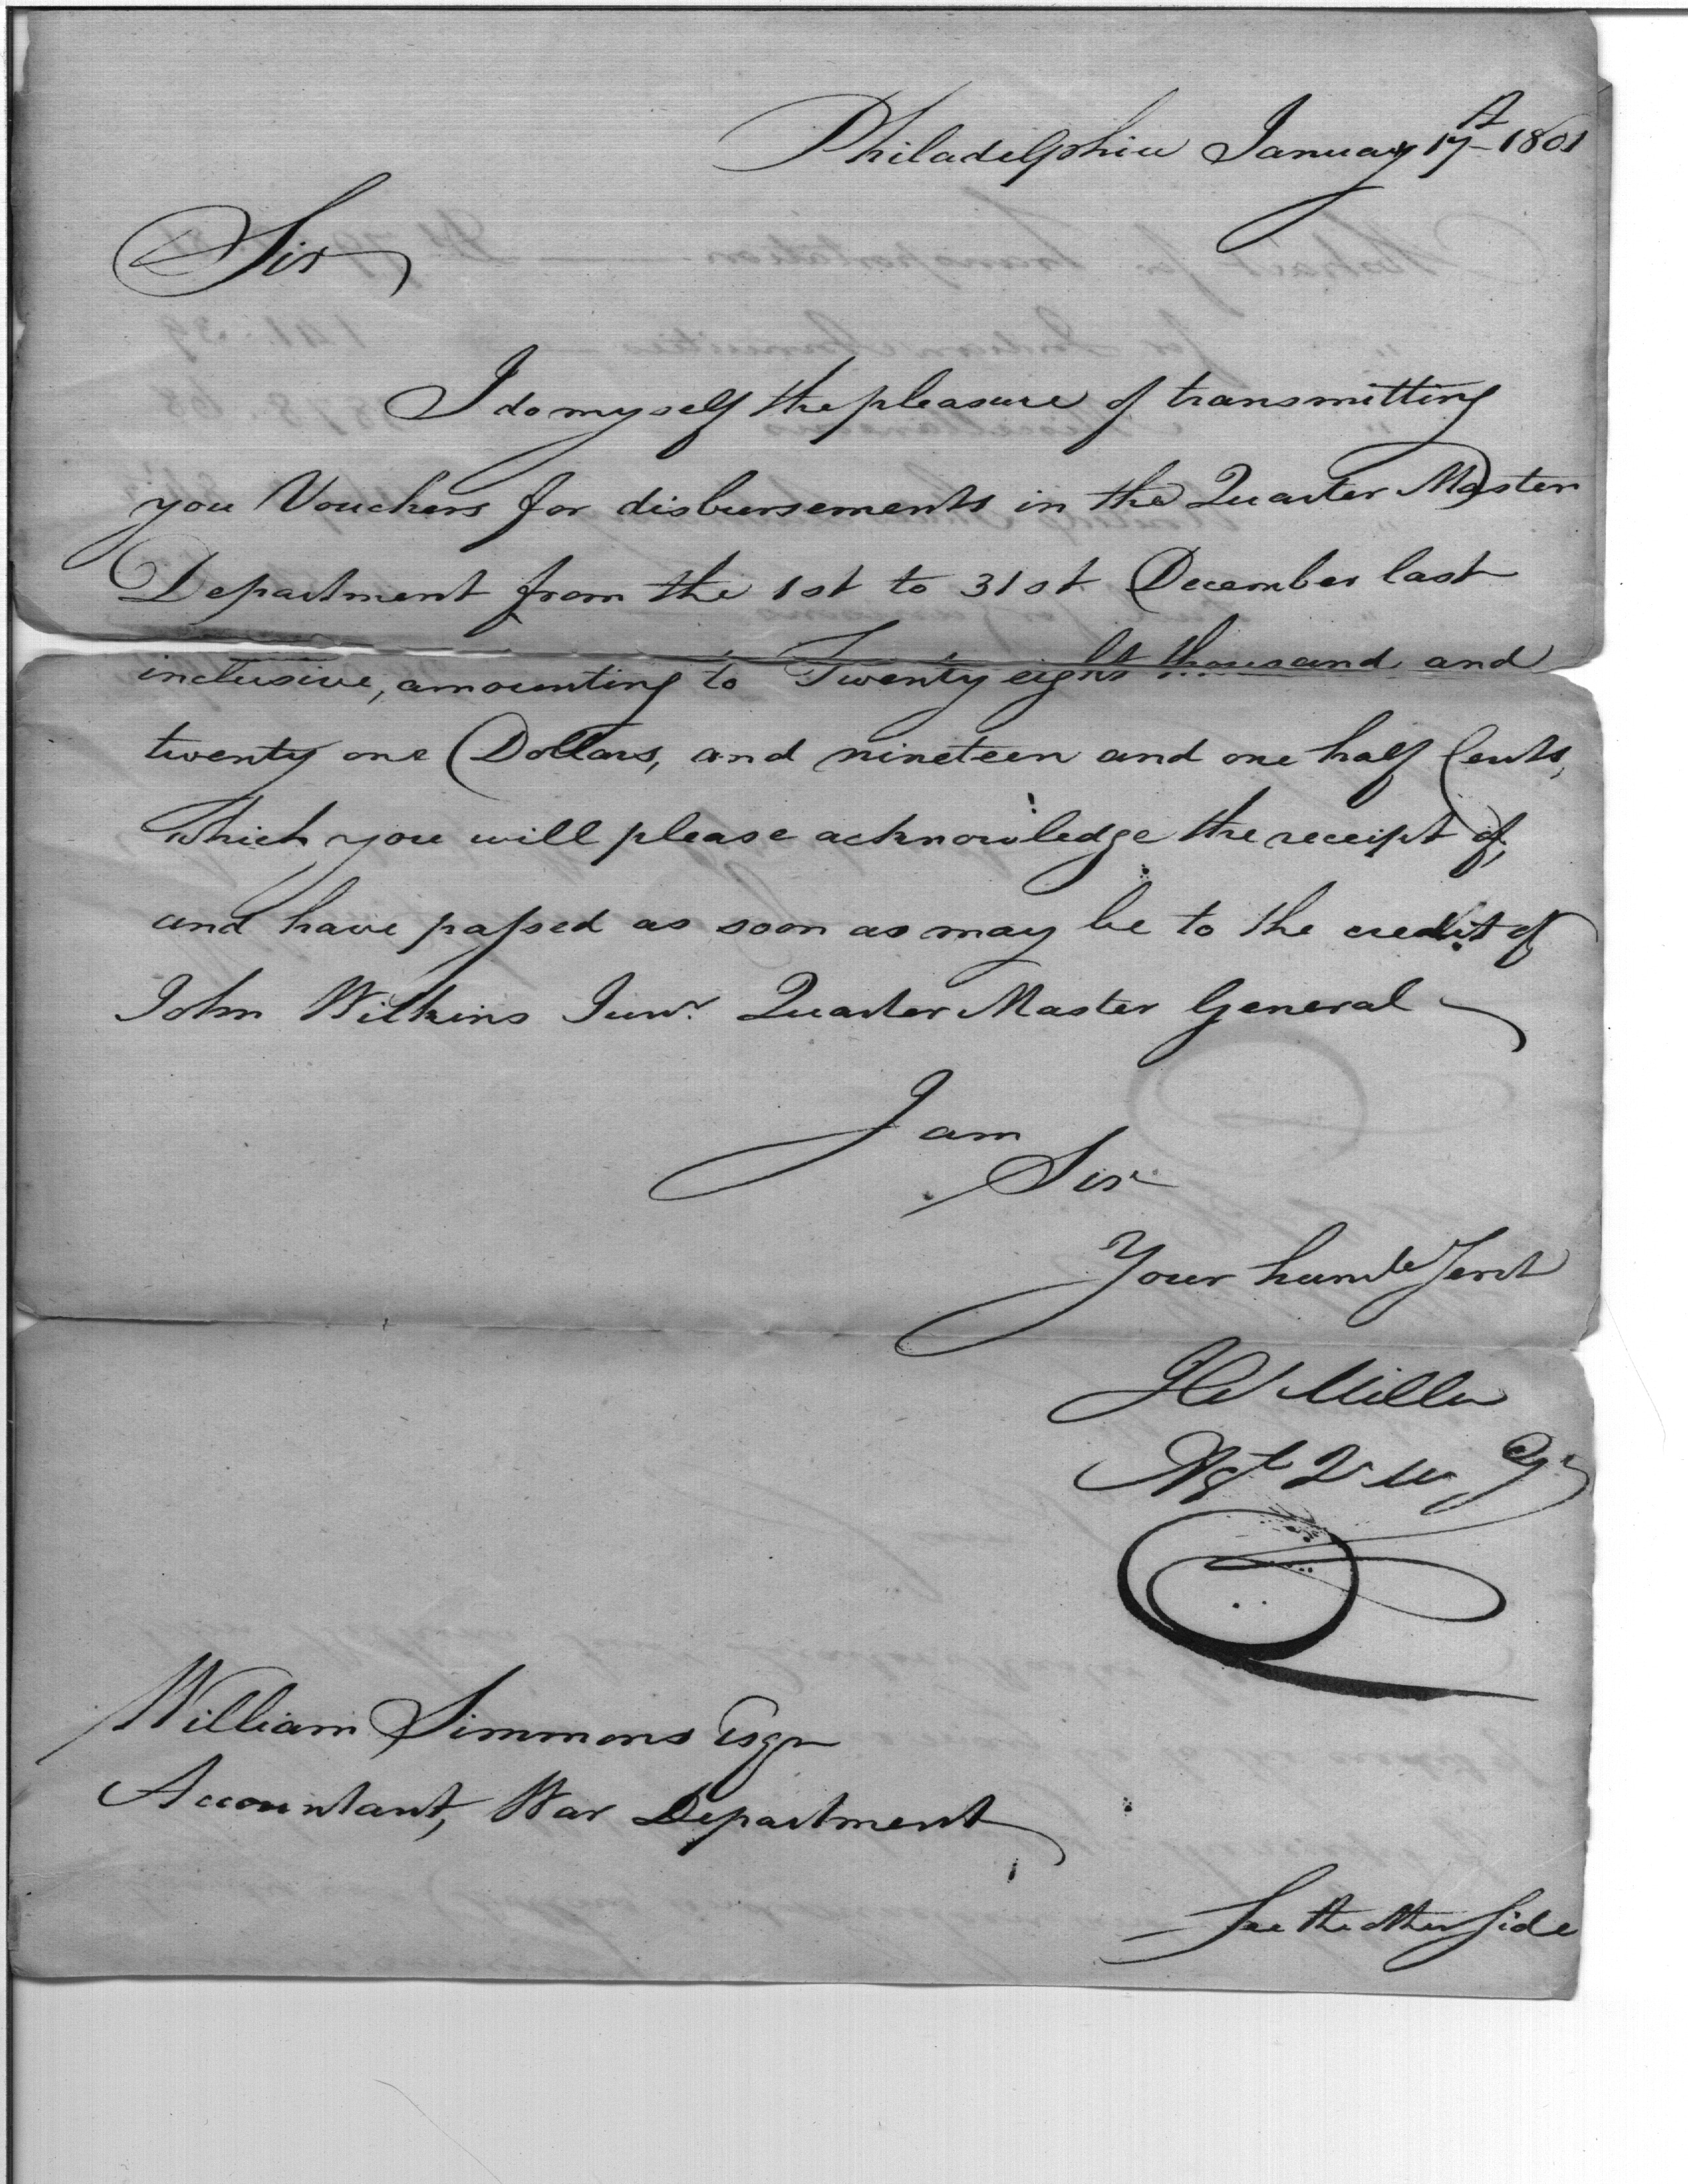 Philadelphia January 17th 1801
Sir
I do myself the pleasure of transmitting
you Vouchers for disbursements in the Quarter Master
Department from the 1st to 31st December last
inclusive, amounting to Twenty eight thousand and
twenty one Dollars, and nineteen and one half Cents,
which you will please acknowledge the receipt of,
and have passed as soon as may be to the credit of
John Wilkins Junr. Quarter Master General
I am
Sir
Your humle Servt
Miller
Agt Q M Gl
William Simmons Esqr
Accountant, War Department
See the other side